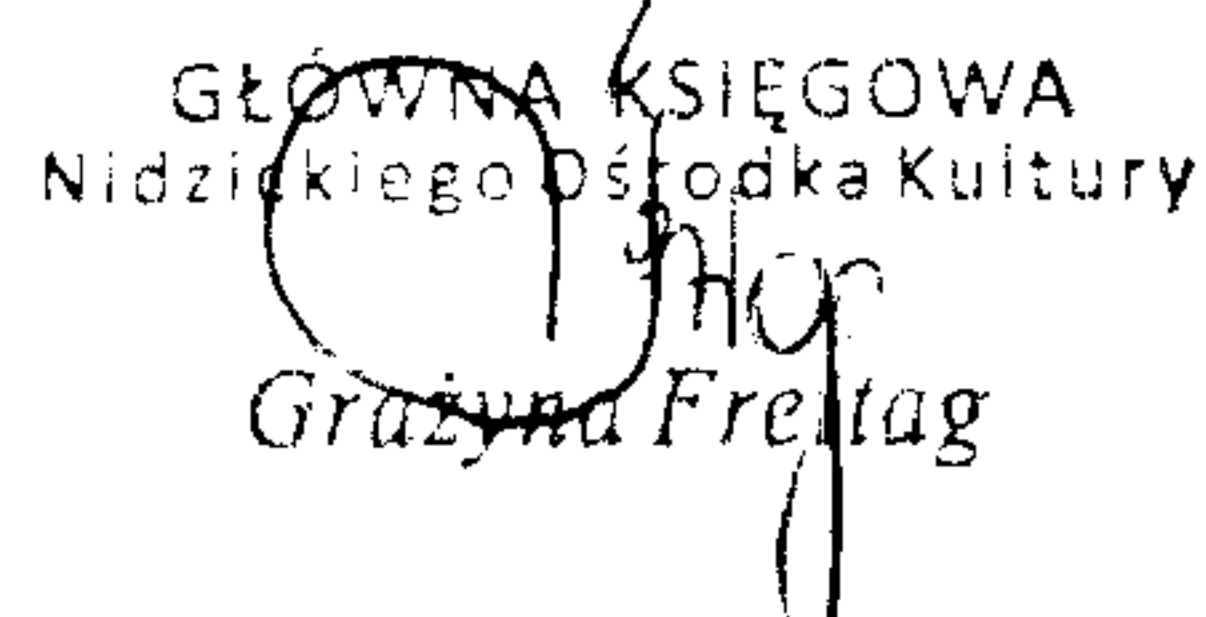 GŁÓWNA KSIĘGOWA
Nidzickiego Ośrodka Kultury
Grażyna Freitag